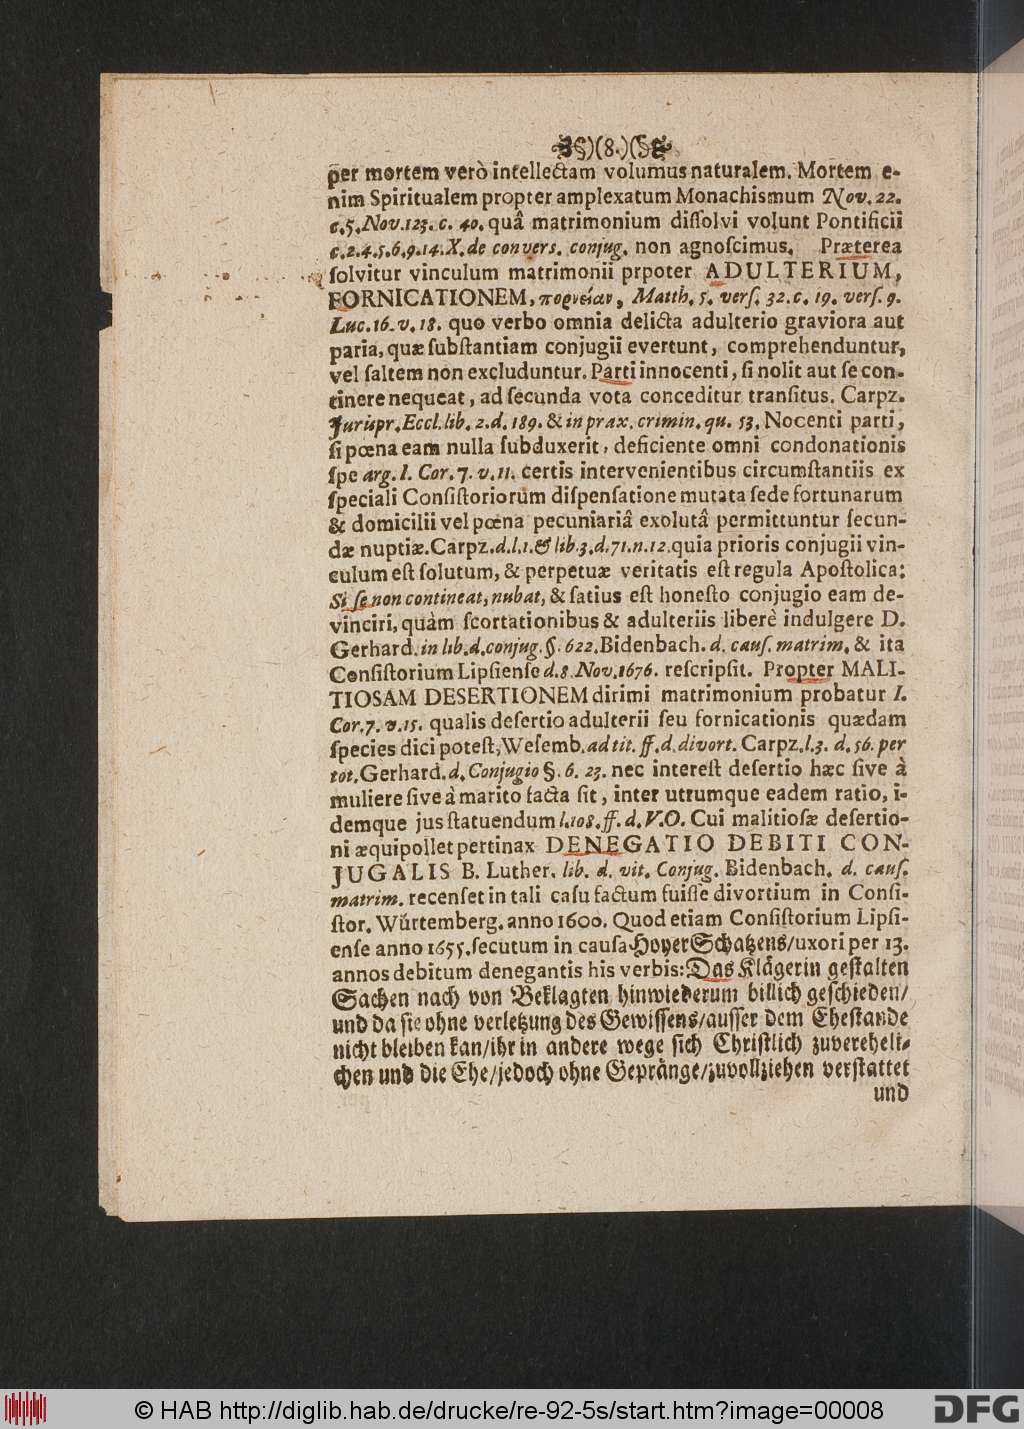 )(8.)(
per mortem verò intellectam volumus naturalem. Mortem e-
nim Spiritualem propter amplexatum Monachismum Nov. 22.
c.5. Nov. 123. c. 40. quâ matrimonium dissolvi volunt Pontificii
c.2.4.5.6.9.14.X. de convers. conjug. non agnoscimus. Præterea
solvitur vinculum matrimonii prpoter ADULTERIUM,
FORNICATIONEM, πορνείαν, Matth. 5. vers. 32. c. 19. vers. 9.
Luc. 16. v. 18. quo verbo omnia delicta adulterio graviora aut
paria, quæ substantiam conjugii evertunt, comprehenduntur,
vel saltem non excluduntur. Parti innocenti, si nolit aut se con-
tinere nequeat, ad secunda vota conceditur transitus. Carpz.
Jurispr. Eccl. lib. 2. d. 189. & in prax. crimin. qu. 53. Nocenti parti,
si pœna eam nulla subduxerit, deficiente omni condonationis
spe arg. 1. Cor. 7. v. 11. certis intervenientibus circumstantiis ex
speciali Consistoriorum dispensatione mutata sede fortunarum
& domicilii vel pœna pecuniariâ exolutâ permittuntur secun-
dæ nuptiæ. Carpz. d. l. 1. & lib. 3. d. 71. n. 12. quia prioris conjugii vin-
culum est solutum, & perpetuæ veritatis est regula Apostolica:
Si se non contineat, nubat, & satius est honesto conjugio eam de-
vinciri, quàm scortationibus & adulteriis liberè indulgere D.
Gerhard. in lib. d. conjug. §. 622. Bidenbach. d. caus. matrim. & ita
Consistorium Lipsiense d. 8. Nov. 1676. rescripsit. Propter MALI-
TIOSAM DESERTIONEM dirimi matrimonium probatur 1.
Cor. 7. v. 15. qualis desertio adulterii seu fornicationis quædam
species dici potest, Wesemb. ad tit. ff. d. divort. Carpz. l. 3. d. 56. per
tot. Gerhard. d. Conjugio §. 6. 23. nec interest desertio hæc sive à
muliere sive à marito facta sit, inter utrumque eadem ratio, i-
demque jus statuendum l. 108. ff. d. V.O. Cui malitiosæ desertio-
ni æquipollet pertinax DENEGATIO DEBITI CON-
JUGALIS B. Luther. lib. d. vit. Conjug. Bidenbach. d. caus.
matrim. recenset in tali casu factum fuisse divortium in Consi-
stor. Würtemberg. anno 1600. Quod etiam Consistorium Lipsi-
ense anno 1655. secutum in causa Hoyer Schatzens/ uxori per 13.
annos debitum denegantis his verbis: Das Klägerin gestalten
Sachen nach von Beklagten hinwiederum billich geschieden/
und da sie ohne verletzung des Gewissens/ausser dem Ehestande
nicht bleiben kan/ihr in andere wege sich Christlich zuvereheli-
chen und die Ehe/jedoch ohne Gepränge/zuvollziehen verstattet
und
© HAB http://diglib.hab.de/drucke/re-92-5s/start.htm?image=00008
DFG